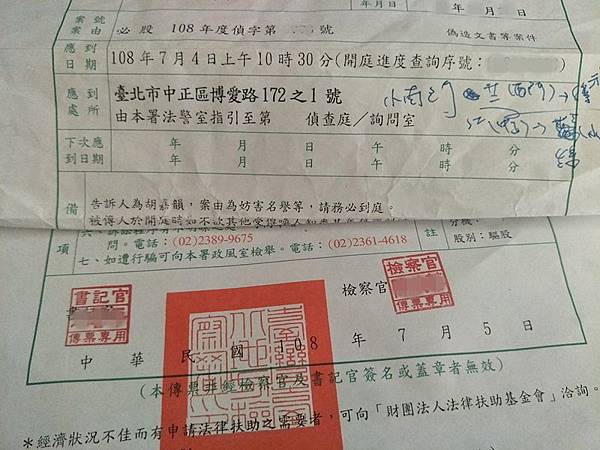 年月日
案號
案由
必 股 108 年度偵字第 號
偽造文書等案件
應到
日期
108 年 7 月 4 日上午 10 時 30 分(開庭進度查詢序號:
應到
處所
臺北市中正區博愛路 172 之 1 號
由本署法警室指引至第 偵查庭／詢問室
小南門
下次應
到日期
年 月 日 午 時 分
年 月 日 午 時 分
備
告訴人為胡嘉韻,案由為妨害名譽等,請務必到庭。
被傳人於開庭時如不欲其他
項
問。電話:(02)2389-9675
(02)2361-4618
七、如遭行騙可向本署政風室檢舉。電話:
註
分機:
股別:驅股
書記官
傳票專用
檢察官
檢察官
傳票專用
中 華 民 國 108 年 7 月 5 日
(本傳票非經檢察官及書記官簽名或蓋章者無效)
*經濟狀況不佳而有申請法律扶助之需要者,可向「財團法人法律扶助基金會」洽詢。